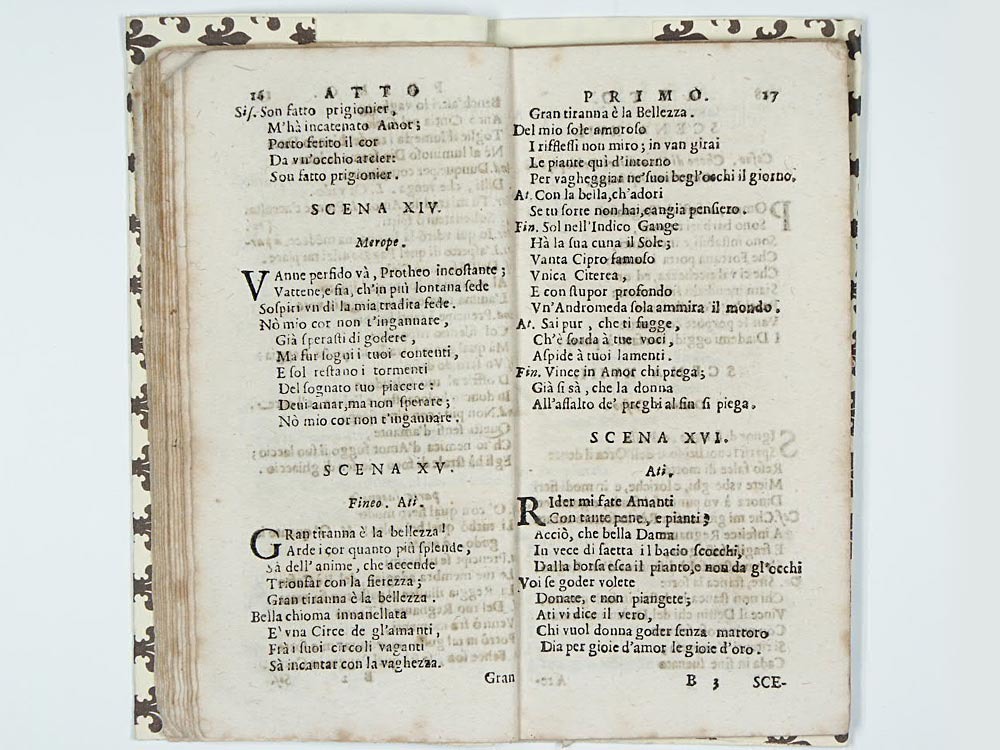 16 ATTO
Sis. Son fatto prigionier,
M'hà incatenato Amor;
Porto ferito il cor
Da vn'occhio arcier:
Son fatto prigionier.
SCENA XIV.
Merope.
VAnne perfido và, Protheo incostante;
Vattene, e sia, ch'in più lontana sede
Sospiri vn dì la mia tradita fede.
Nò mio cor non t'ingannare,
Già sperasti di godere,
Ma fur sogni i tuoi contenti,
E sol restano i tormenti
Del sognato tuo piacere:
Deui amar, ma non sperare;
Nò mio cor non t'ingannare.
SCENA XV.
Fineo. Ati.
GRan tiranna è la bellezza!
Arde i cor quanto più splende,
Sà dell'anime, che accende
Trionfar con la fierezza;
Gran tiranna è la bellezza.
Bella chioma innanellata
E' vna Circe de gl'amanti,
Frà i suoi circoli vaganti
Sà incantar con la vaghezza.
Gran
PRIMO. 17
Gran tiranna è la Bellezza.
Del mio sole amoroso
I riflessi non miro; in van girai
Le piante quì d'intorno
Per vagheggiar ne' suoi begl'occhi il giorno.
At. Con la bella, ch'adori
Se tu sorte non hai, cangia pensiero.
Fin. Sol nell'Indico Gange
Hà la sua cuna il Sole;
Vanta Cipro famoso
Vnica Citerea,
E con stupor profondo
Vn'Andromeda sola ammira il mondo.
At. Sai pur, che ti fugge,
Ch'è sorda à tue voci,
Aspide à tuoi lamenti.
Fin. Vince in Amor chi prega;
Già si sà, che la donna
All'assalto de' preghi al fin si piega.
SCENA XVI.
Ati.
RIder mi fate Amanti
Con tante pene, e pianti;
Acciò, che bella Dama
In vece di saetta il bacio scocchi,
Dalla borsa esca il pianto, e non da gl'occhi
Voi se goder volete
Donate, e non piangete;
Ati vi dice il vero,
Chi vuol donna goder senza martoro
Dia per gioie d'amor le gioie d'oro.
B 3 SCE-